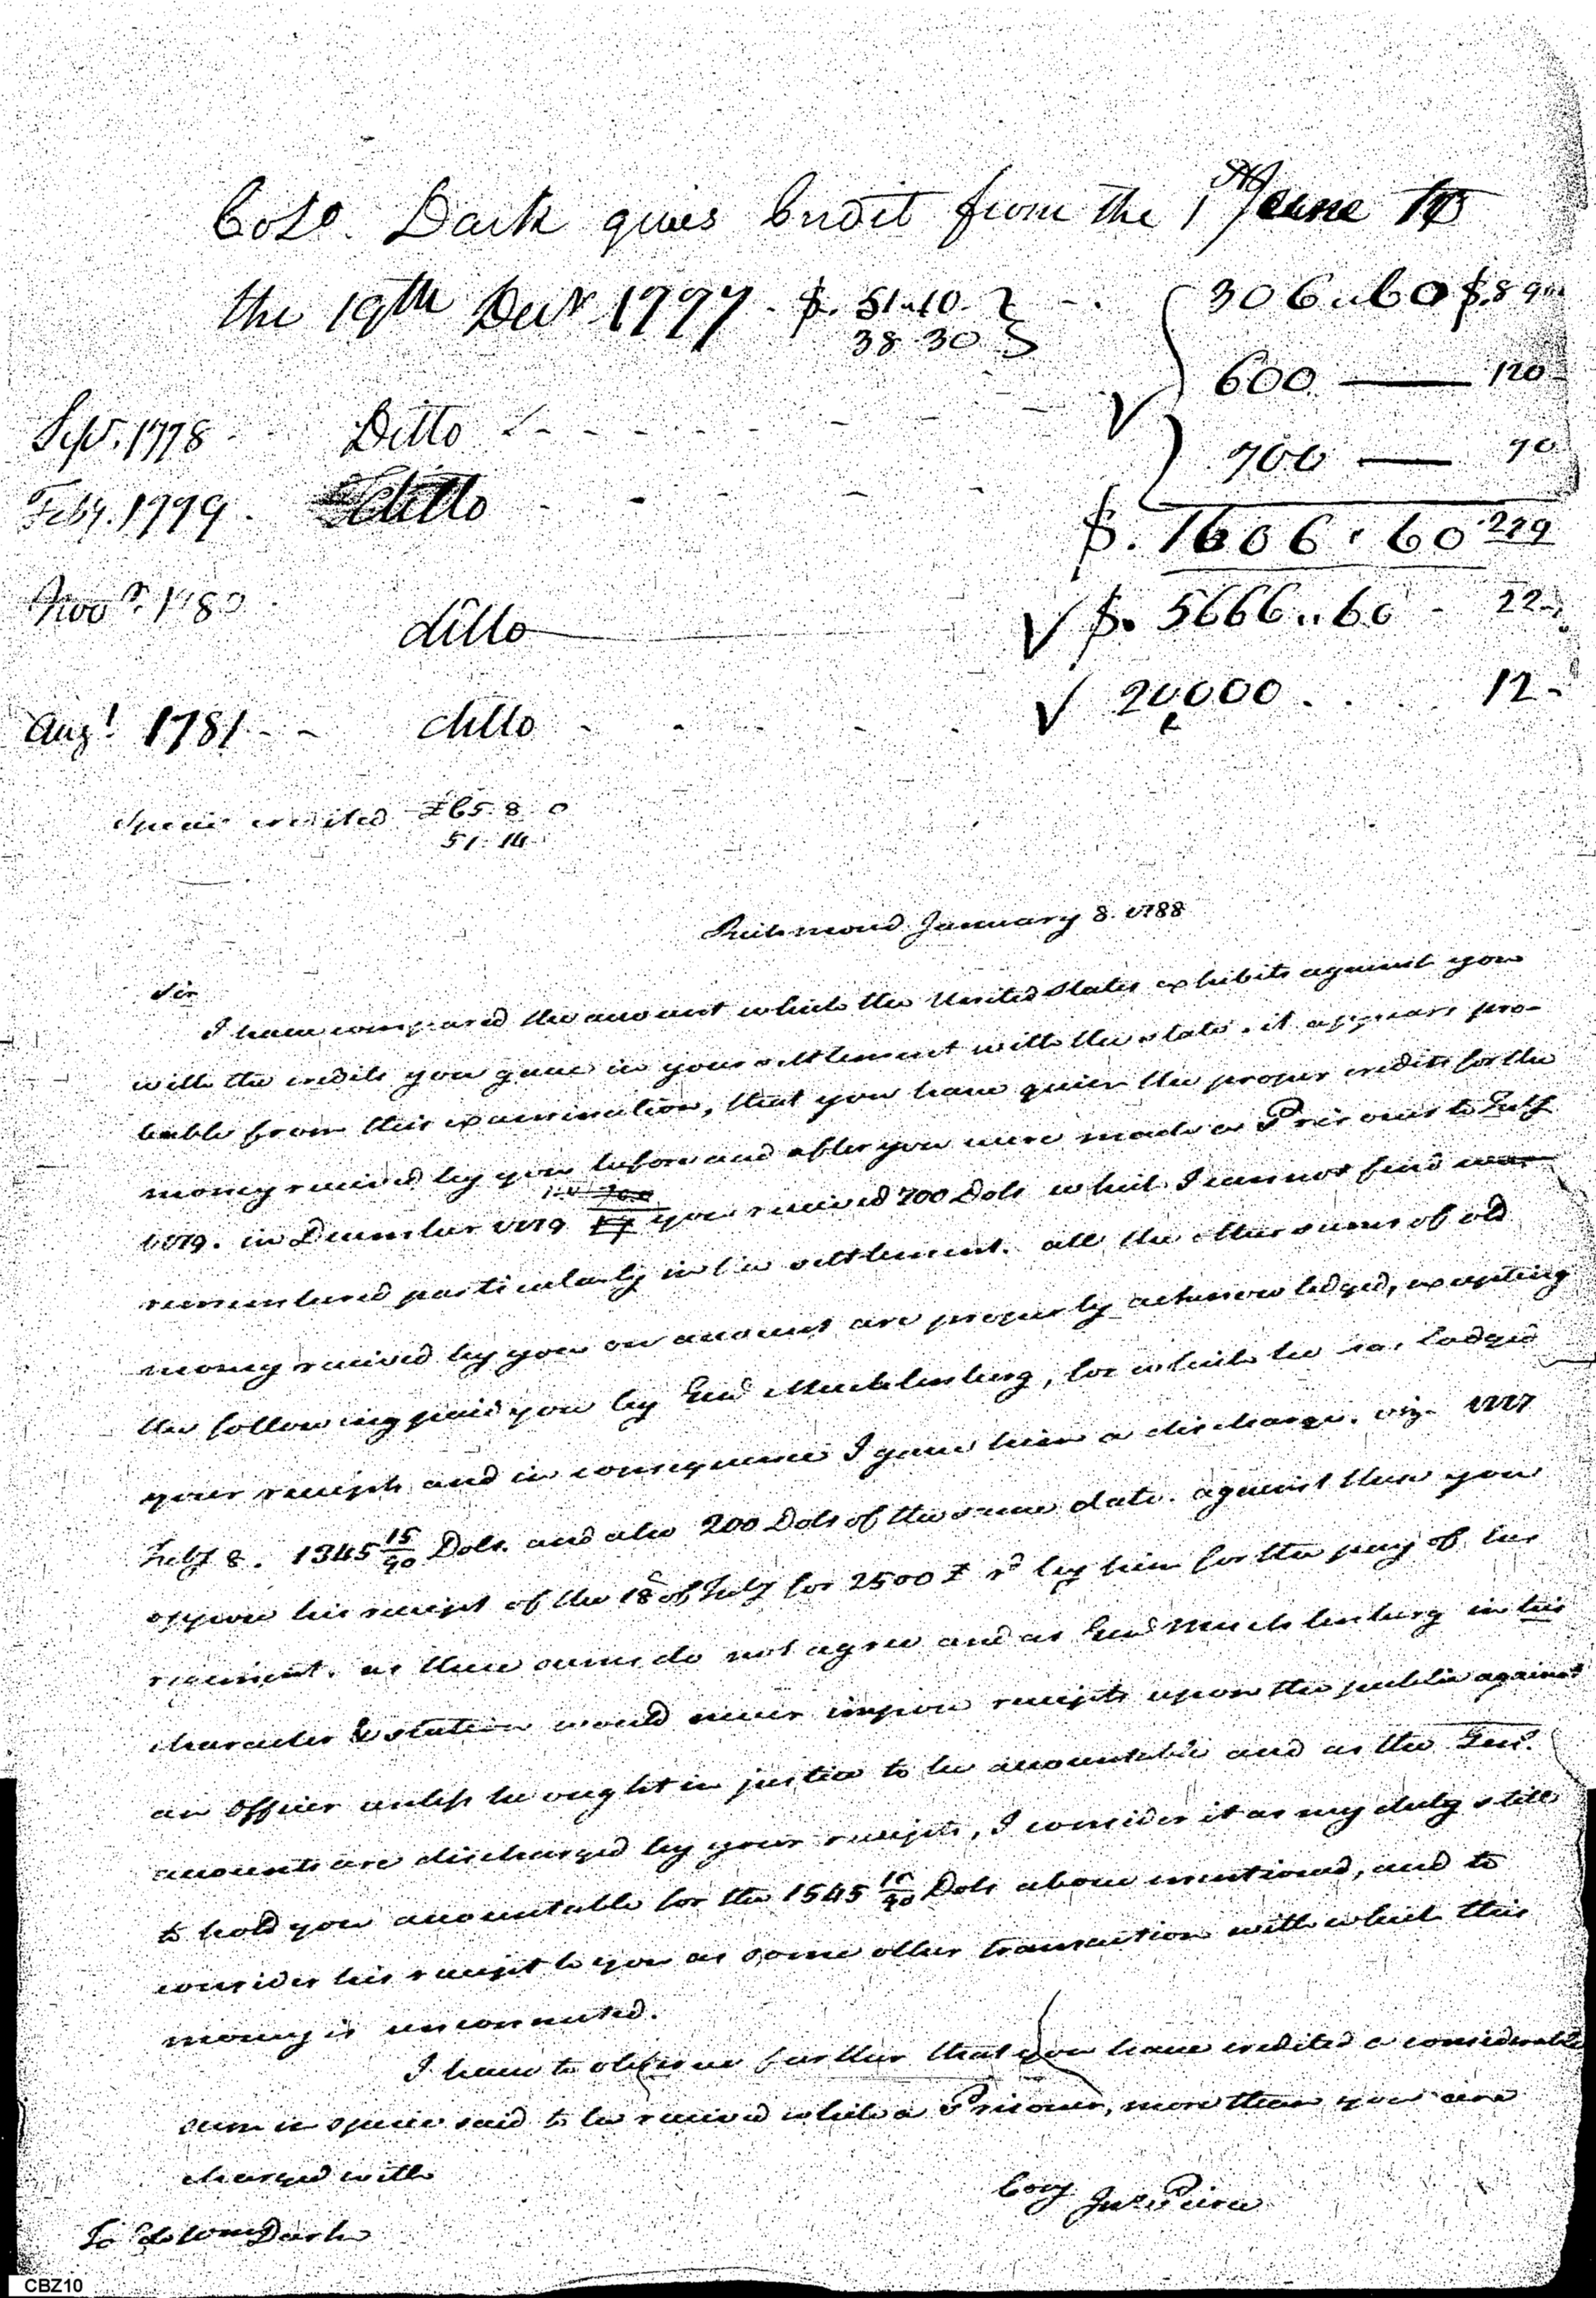 Colo. Dark gives Credit from the 1st June to
the 19th Decr 1777. $. 51..10. } - . 306..60 $.89
38.30 }
600 — 120
Sepr. 1778 Ditto
700 — 70
Feby. 1779. ditto
$. 1606.60 279
Novr. 1780 ditto $. 5666..60 - 22-
Augt 1781 - - ditto 20000 . . 12 -
Specie credited £65.8.0
51.14
Richmond January 8. 1788
Sir
I have compared the amount which the United States exhibits against you
with the credits you gave in your settlement with the state. it appears pro-
bable from this examination, that you have given the proper credits for the
money received by you before and after you were made a Prisoner to July
1779. in December 1779 you received 700 Dols which I cannot find was
remembered particularly in the settlement. all the other sums of old
money received by you on account are properly acknowledged, excepting
the following paid you by Genl Muchlenburg, for which he has lodged
your receipts and in consequence I gave him a discharge. viz. 1777
July 8. 1345 15/90 Dols. and also 200 Dols of the same date. against these you
oppose his receipt of the 18 of July for 2500 £ rd by him for the pay of his
regiment. as these sums do not agree and as Genl Muchlenburg in his
character & station would never impose receipts upon the public against
an Officer unless he ought in justice to be accountable and as the Genl.
accounts are discharged by your receipts, I consider it as my duty still
to hold you accountable for the 1545 15/90 Dols above mentioned, and to
consider his receipt to you as some other transaction with which this
money is unconnected.
I have to observe further that you have credited a considerable
sum in specie said to be received while a Prisoner, more than you are
charged with
Copy Jno Pierce
To Colo Wm Dark
CBZ10